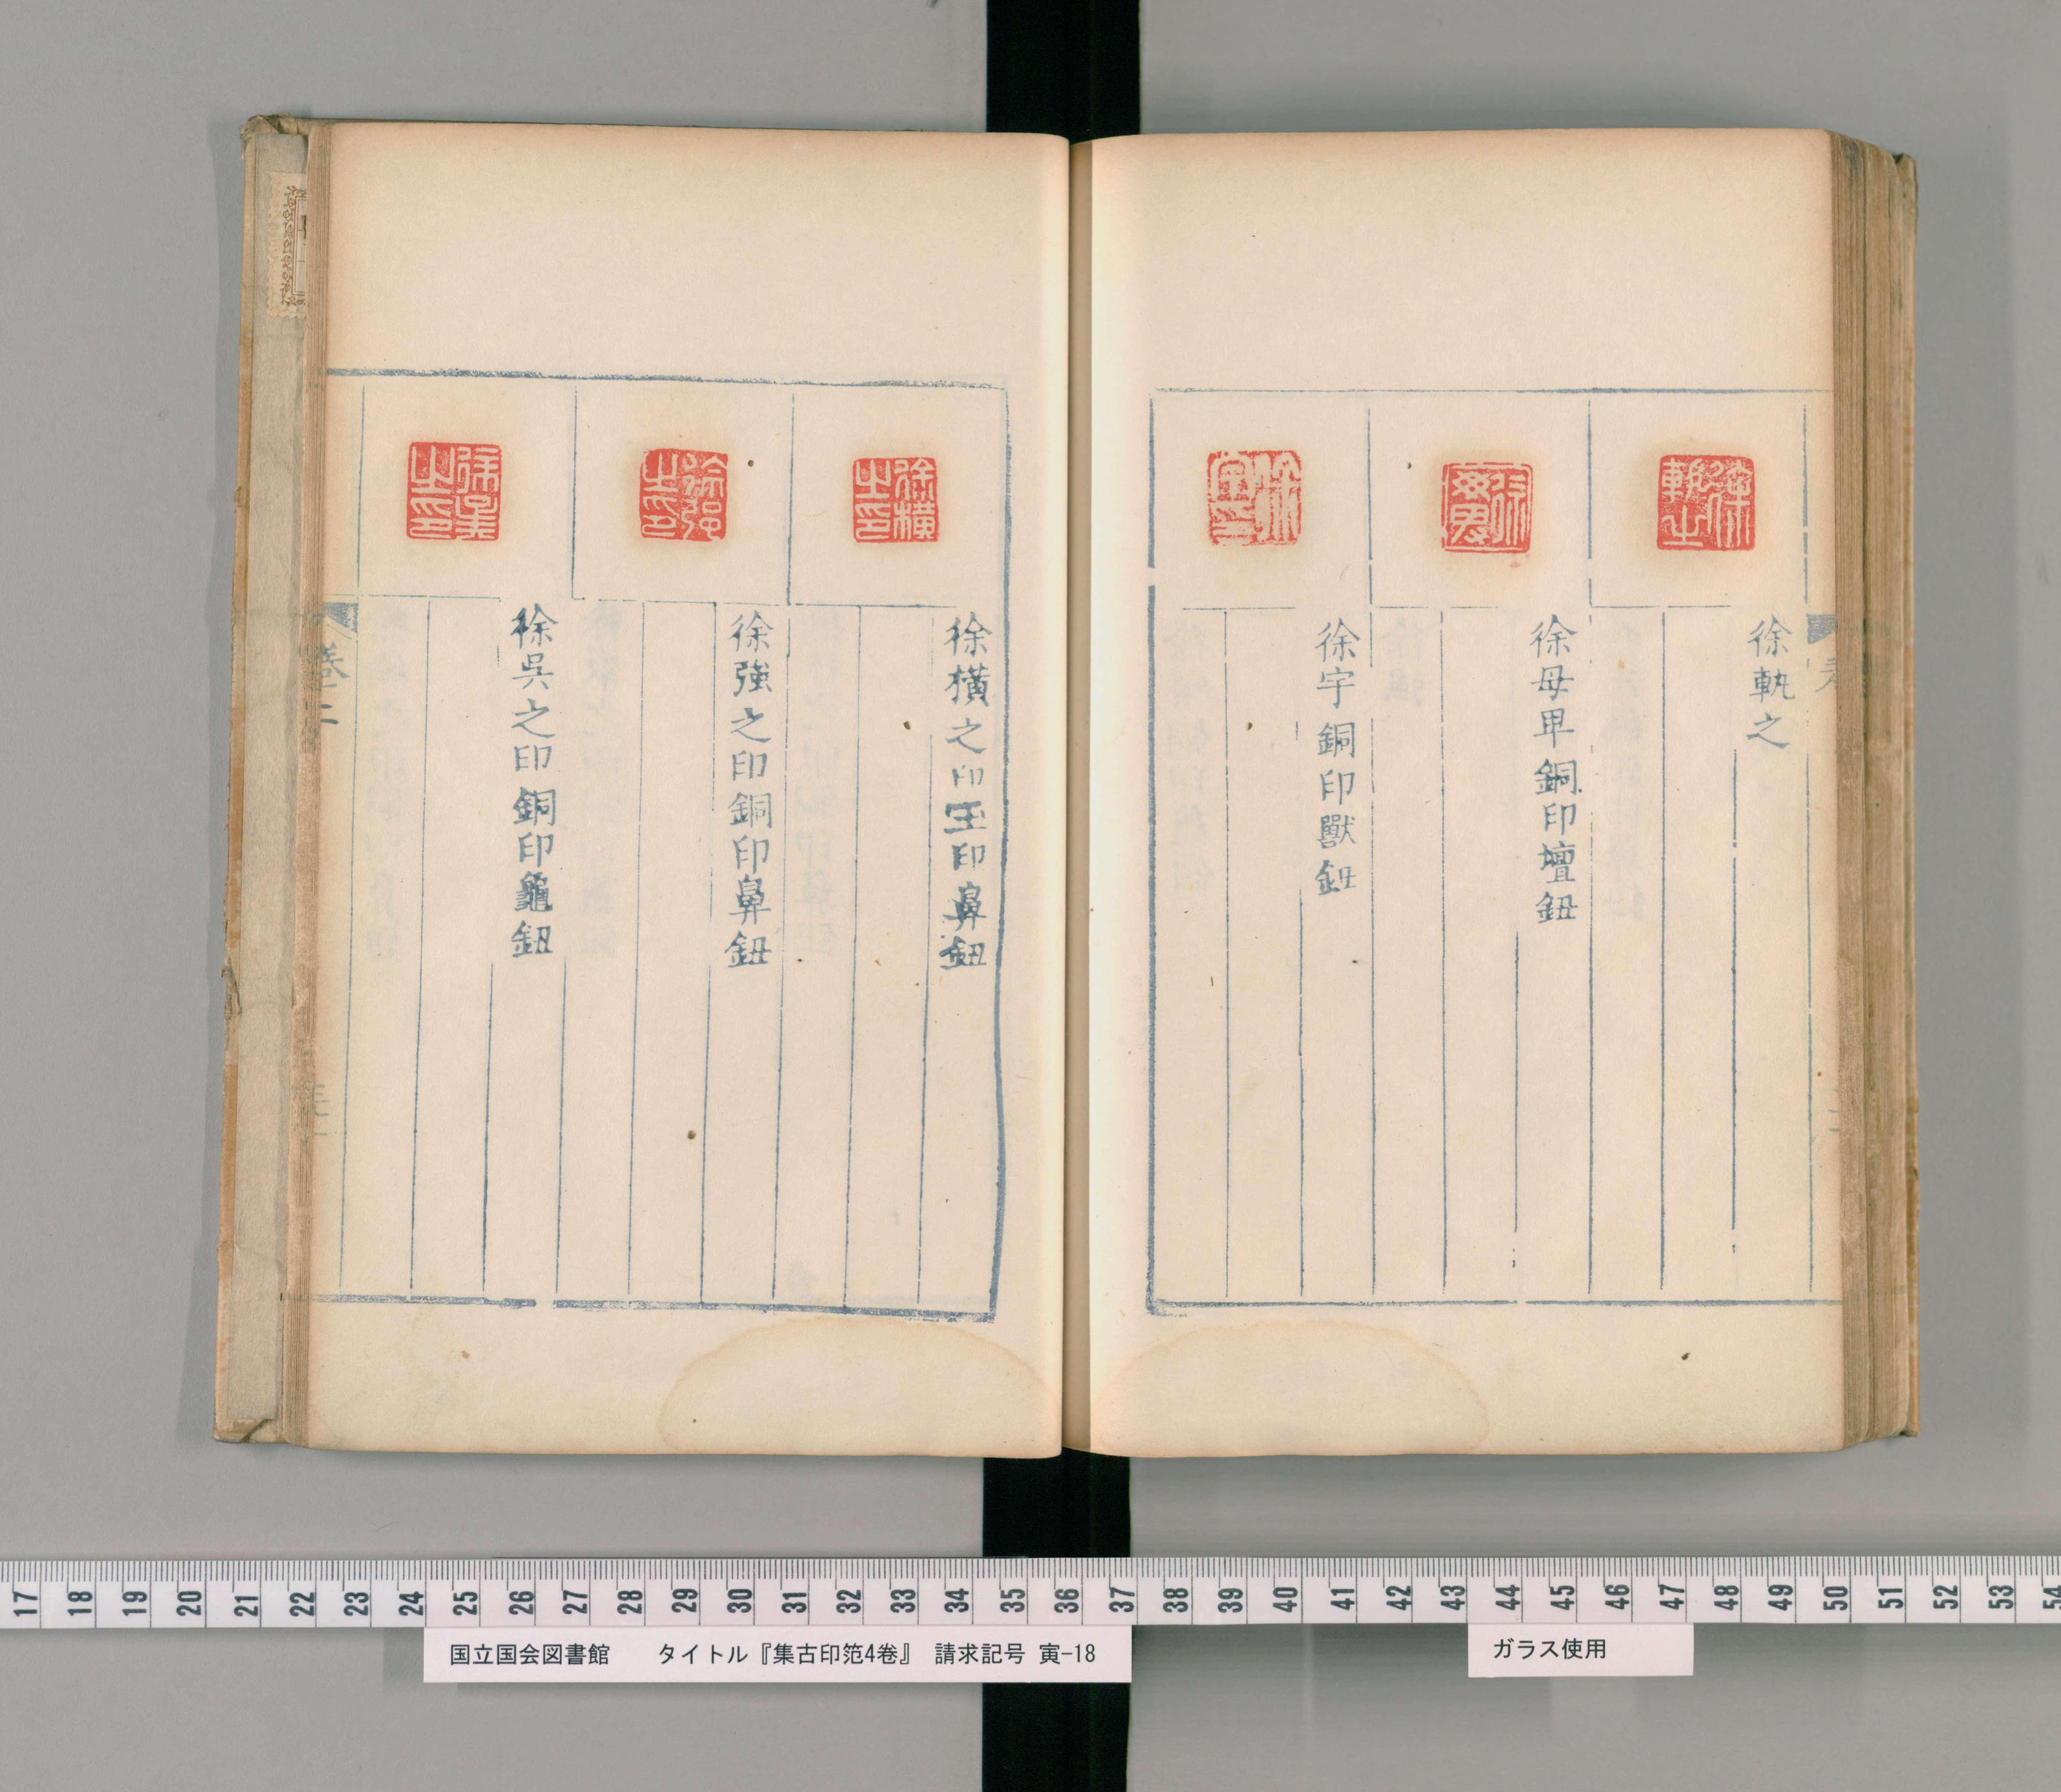 徐執之
徐母畀銅印壇鈕
徐宇銅印獸鈕
徐橫之印玉印鼻鈕
徐強之印銅印鼻鈕
徐吳之印銅印龜鈕
徐橫之印
徐強之印
徐吳之印
卷二
17 18 19 20 21 22 23 24 25 26 27 28 29 30 31 32 33 34 35 36 37 38 39 40 41 42 43 44 45 46 47 48 49 50 51 52 53 54
国立国会図書館 タイトル『集古印笵4巻』 請求記号 寅-18
ガラス使用